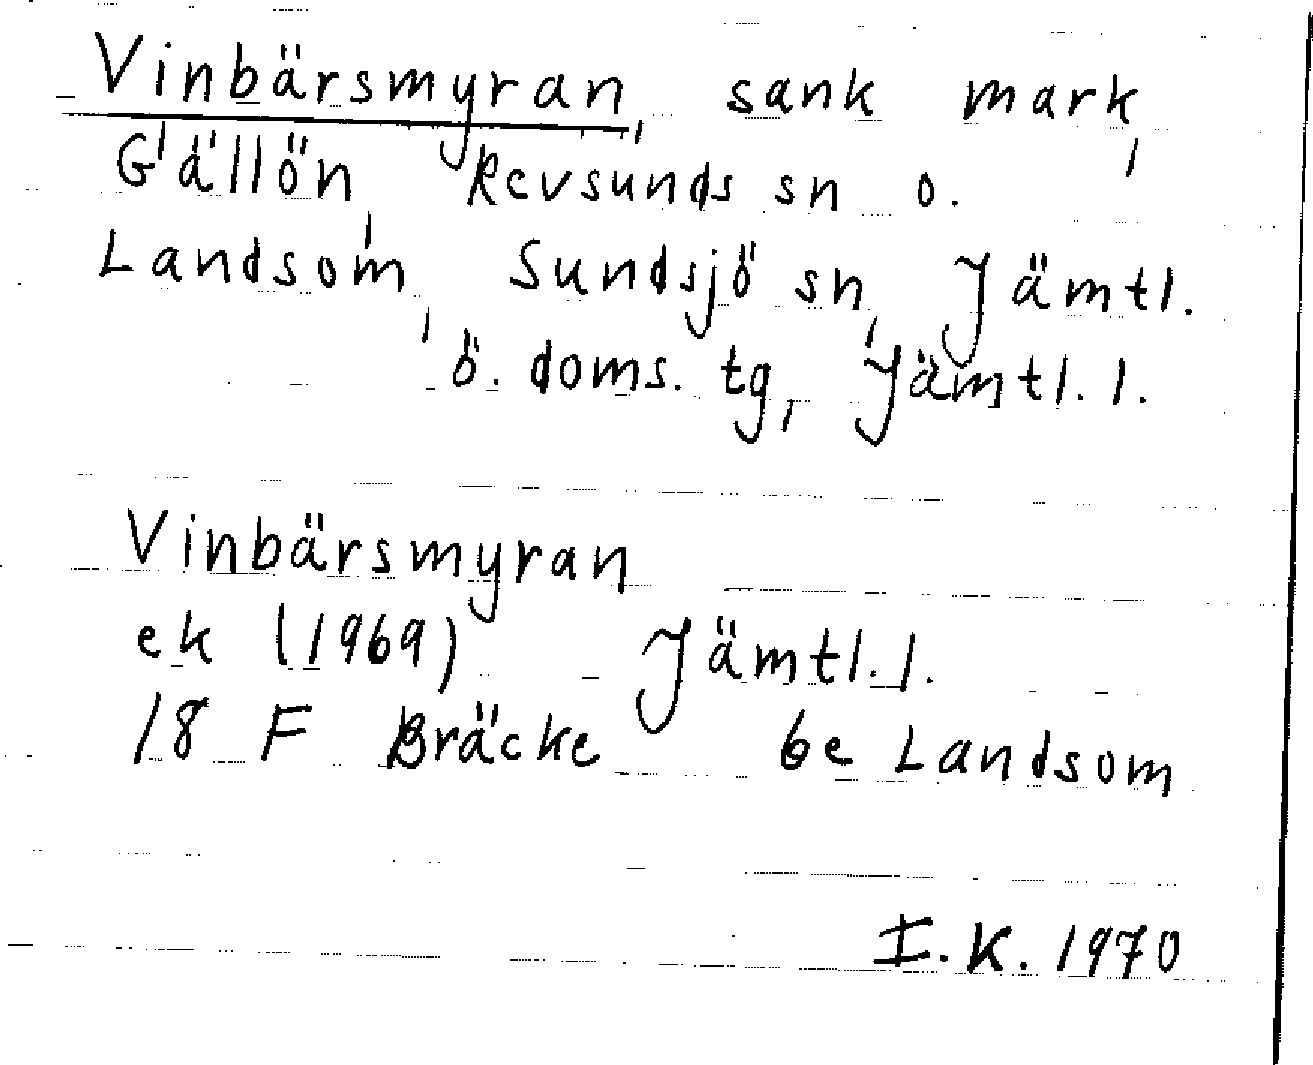 Vinbärsmyran, sank mark,
Gällön, Revsunds sn o.
Landsom, Sundsjö sn, Jämtl.
ö. doms. tg, Jämtl. l.
Vinbärsmyran
ek (1969) Jämtl. l.
18 F Bräcke 6e Landsom
I. K. 1970